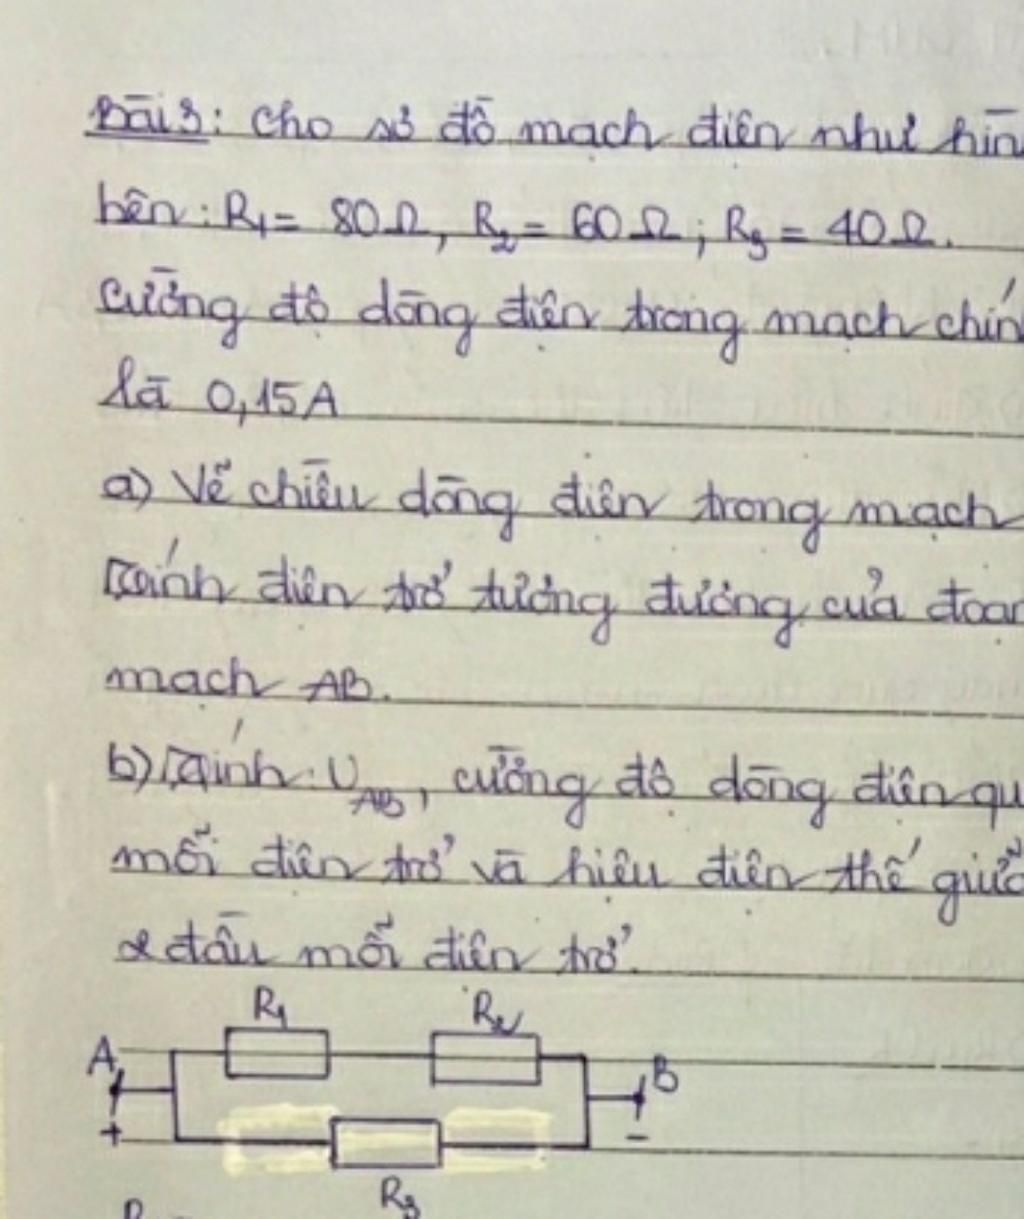 Bài 3: Cho sơ đồ mạch điện như hìn
bên: R₁ = 80Ω, R₂ = 60Ω; R₃ = 40Ω.
Cường độ dòng điện trong mạch chín
là 0,15A
a) Vẽ chiều dòng điện trong mạch
Tính điện trở tương đương của đoạn
mạch AB.
b) Tính: U_AB, cường độ dòng điện qu
mỗi điện trở và hiệu điện thế giữa
2 đầu mỗi điện trở.
R₁ R₂
A B
+ -
R₃